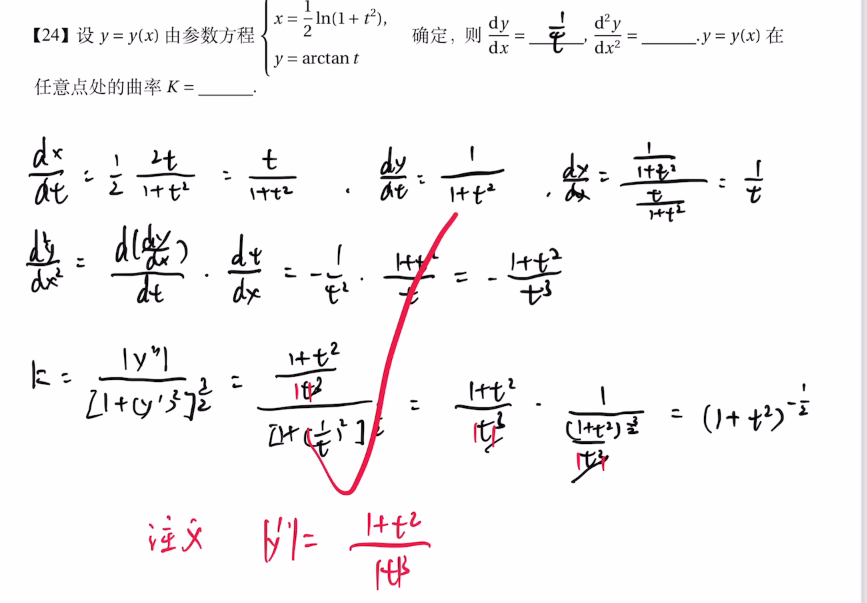 【24】设 y = y(x) 由参数方程 { x = \frac{1}{2}ln(1 + t²), y = arctan t 确定, 则 \frac{dy}{dx} = \frac{1}{t}, \frac{d²y}{dx²} = ______. y = y(x) 在
任意点处的曲率 K = ______.
\frac{dx}{dt} = \frac{1}{2} \frac{2t}{1+t²} = \frac{t}{1+t²} . \frac{dy}{dt} = \frac{1}{1+t²} . \frac{dy}{dx} = \frac{\frac{1}{1+t²}}{\frac{t}{1+t²}} = \frac{1}{t}
\frac{d²y}{dx²} = \frac{d(\frac{dy}{dx})}{dt} · \frac{dt}{dx} = -\frac{1}{t²} · \frac{1+t²}{t} = -\frac{1+t²}{t³}
k = \frac{|y''|}{[1+(y')²]^{\frac{3}{2}}} = \frac{\frac{1+t²}{|t|³}}{[1+(\frac{1}{t})²]} = \frac{1+t²}{|t|³} · \frac{1}{\frac{(1+t²)^{\frac{3}{2}}}{|t|³}} = (1+t²)^{-\frac{1}{2}}
注义 |y''| = \frac{1+t²}{|t|³}